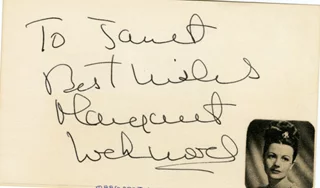 To Janet
Best Wishes
Margaret
Lockwood